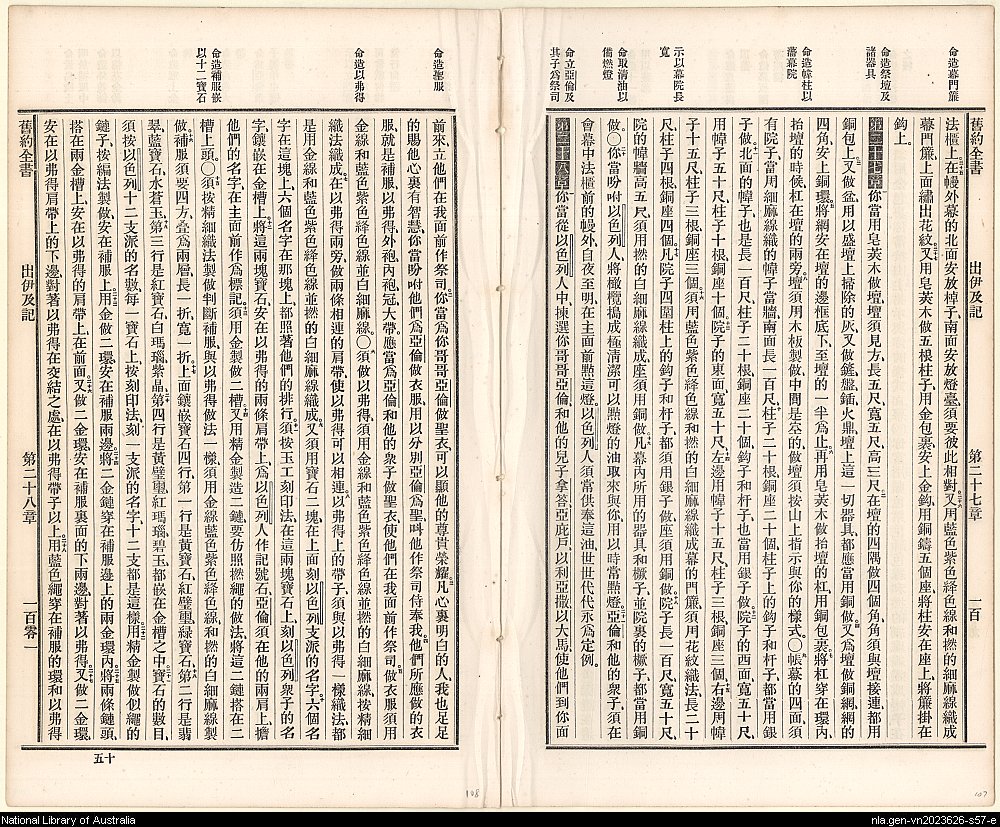 命造幕門簾
命造祭壇及
諸器具
命造帷柱以
藩幕院
示以幕院長
寬
命取清油以
備燃燈
命立亞倫及
其子爲祭司
舊約全書 出伊及記 第二十七章 一百
法櫃上在幔外幕的北面安放棹子南面安放燈臺須要彼此相對又用藍色紫色絳色線和撚的細麻線織成
幕門簾上面繡出花紋又用皂莢木做五根柱子用金包裹安上金鈎用銅鑄五個座將柱安在座上將簾掛在
鈎上
第二十七章你當用皂莢木做壇壇須見方長五尺寬五尺高三尺在壇的四隅做四個角角須與壇接連都用
銅包上又做盆用以盛壇上掃除的灰又做鏟盤鍤火鼎壇上這一切器具都應當用銅做又爲壇做銅網網的
四角安上銅環將網安在壇的邊框底下至壇的一半爲止再用皂莢木做抬壇的杠用銅包裹將杠穿在環內
抬壇的時候杠在壇的兩旁壇須用木板製做中間是空的做壇須按山上指示與你的樣式〇帳幕的四面須
有院子當用細麻線織的幃子當牆南面長一百尺柱子二十根銅座二十個柱子上的鈎子和杆子都當用銀
子做北面的幃子也是長一百尺柱子二十根銅座二十個鈎子和杆子也當用銀子做院子的西面寬五十尺
用幃子五十尺柱子十根銅座十個院子的東面寬五十尺左邊用幃子十五尺柱子三根銅座三個右邊用幃
子十五尺柱子三根銅座三個須用藍色紫色絳色線和撚的白細麻線織成幕的門簾須用花紋織法長二十
尺柱子四根銅座四個凡院子四圍柱上的鈎子和杆子都當用銀子做座須用銅做院子長一百尺寬五十尺
院的幃牆高五尺須用撚的白細麻線織成座須用銅做凡幕內所用的器具和橛子並院裏的橛子都當用銅
做〇你當吩咐以色列人將橄欖搗成極清潔可以點燈的油取來與你用以時常點燈亞倫和他的衆子須在
會幕中法櫃前的幔外自夜至明在主面前點這燈以色列人須當供奉這油世世代代永爲定例
第二十八章你當從以色列人中揀選你哥哥亞倫和他的兒子拿答亞庇戶以利亞撒以大馬使他們到你面
命造聖服
命造以弗得
命造補服嵌
以十二寶石
前來立他們在我面前作祭司你當爲你哥哥亞倫做聖衣可以顯他的尊貴榮耀凡心裏明白的人我也足足
的賜他心裏有智慧你當吩咐他們爲亞倫做衣服用以分別亞倫爲聖叫他作祭司侍奉我他們所應做的衣
服就是補服以弗得外袍內袍冠大帶應當爲亞倫和他的衆子做聖衣使他們在我面前作祭司做衣服須用
金線和藍色紫色絳色線並白細麻線〇須做以弗得須用金線和藍色紫色絳色線並撚的白細麻線按精細
織法織成在以弗得兩旁做兩條相連的肩帶使以弗得可以相連以弗得上的帶子須與以弗得一樣織法都
是用金線和藍色紫色絳色線並撚的白細麻線織成又須用寶石二塊在上面刻以色列支派的名字六個名
字在這塊上六個名字在那塊上都照著他們的排行須按玉工刻印法在這兩塊寶石上刻以色列衆子的名
字鑲嵌在金槽上將這兩塊寶石安在以弗得的兩條肩帶上爲以色列人作記號石亞倫須在他的兩肩上擔
他們的名字在主面前作爲標記須用金製做二槽又用精金製造二鏈要仿照撚繩的做法將這二鏈搭在二
槽上頭〇須按精細織法製做判斷補服與以弗得做法一樣須用金線藍色紫色絳色線和撚的白細麻線製
做補服須要四方疊爲兩層長一折寬一折上面鑲嵌寶石四行第一行是黃寶石紅璧璽綠寶石第二行是翡
翠藍寶石水蒼玉第三行是紅寶石白瑪瑙紫晶第四行是黃璧璽紅瑪瑙碧玉都嵌在金槽之中寶石的數目
須按以色列十二支派的名數每一寶石上按刻印法刻一支派的名字十二支都是這樣用精金製做似繩的
鏈子按編法製做安在補服上用金做二環安在補服兩邊將二金鏈穿在補服邊上的兩金環內將兩條鏈
搭在兩金槽上安在以弗得的肩帶上在前面又做二金環安在補服裏面的下兩邊對著以弗得又做二金環
安在以弗得肩帶上的下邊對著以弗得在交結之處在以弗得帶子以上用藍色繩穿在補服的環和以弗得
舊約全書 出伊及記 第二十八章 一百零一
五十
108
107
National Library of Australia
nla.gen-vn2023626-s57-e